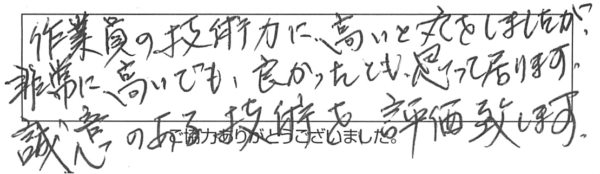 作業員の技術力に、高いと丈をしましたが、
非常に高いでも、良かったとも、思って居ります。
誠意のある技術を評価致します。
ご協力ありがとうございました。